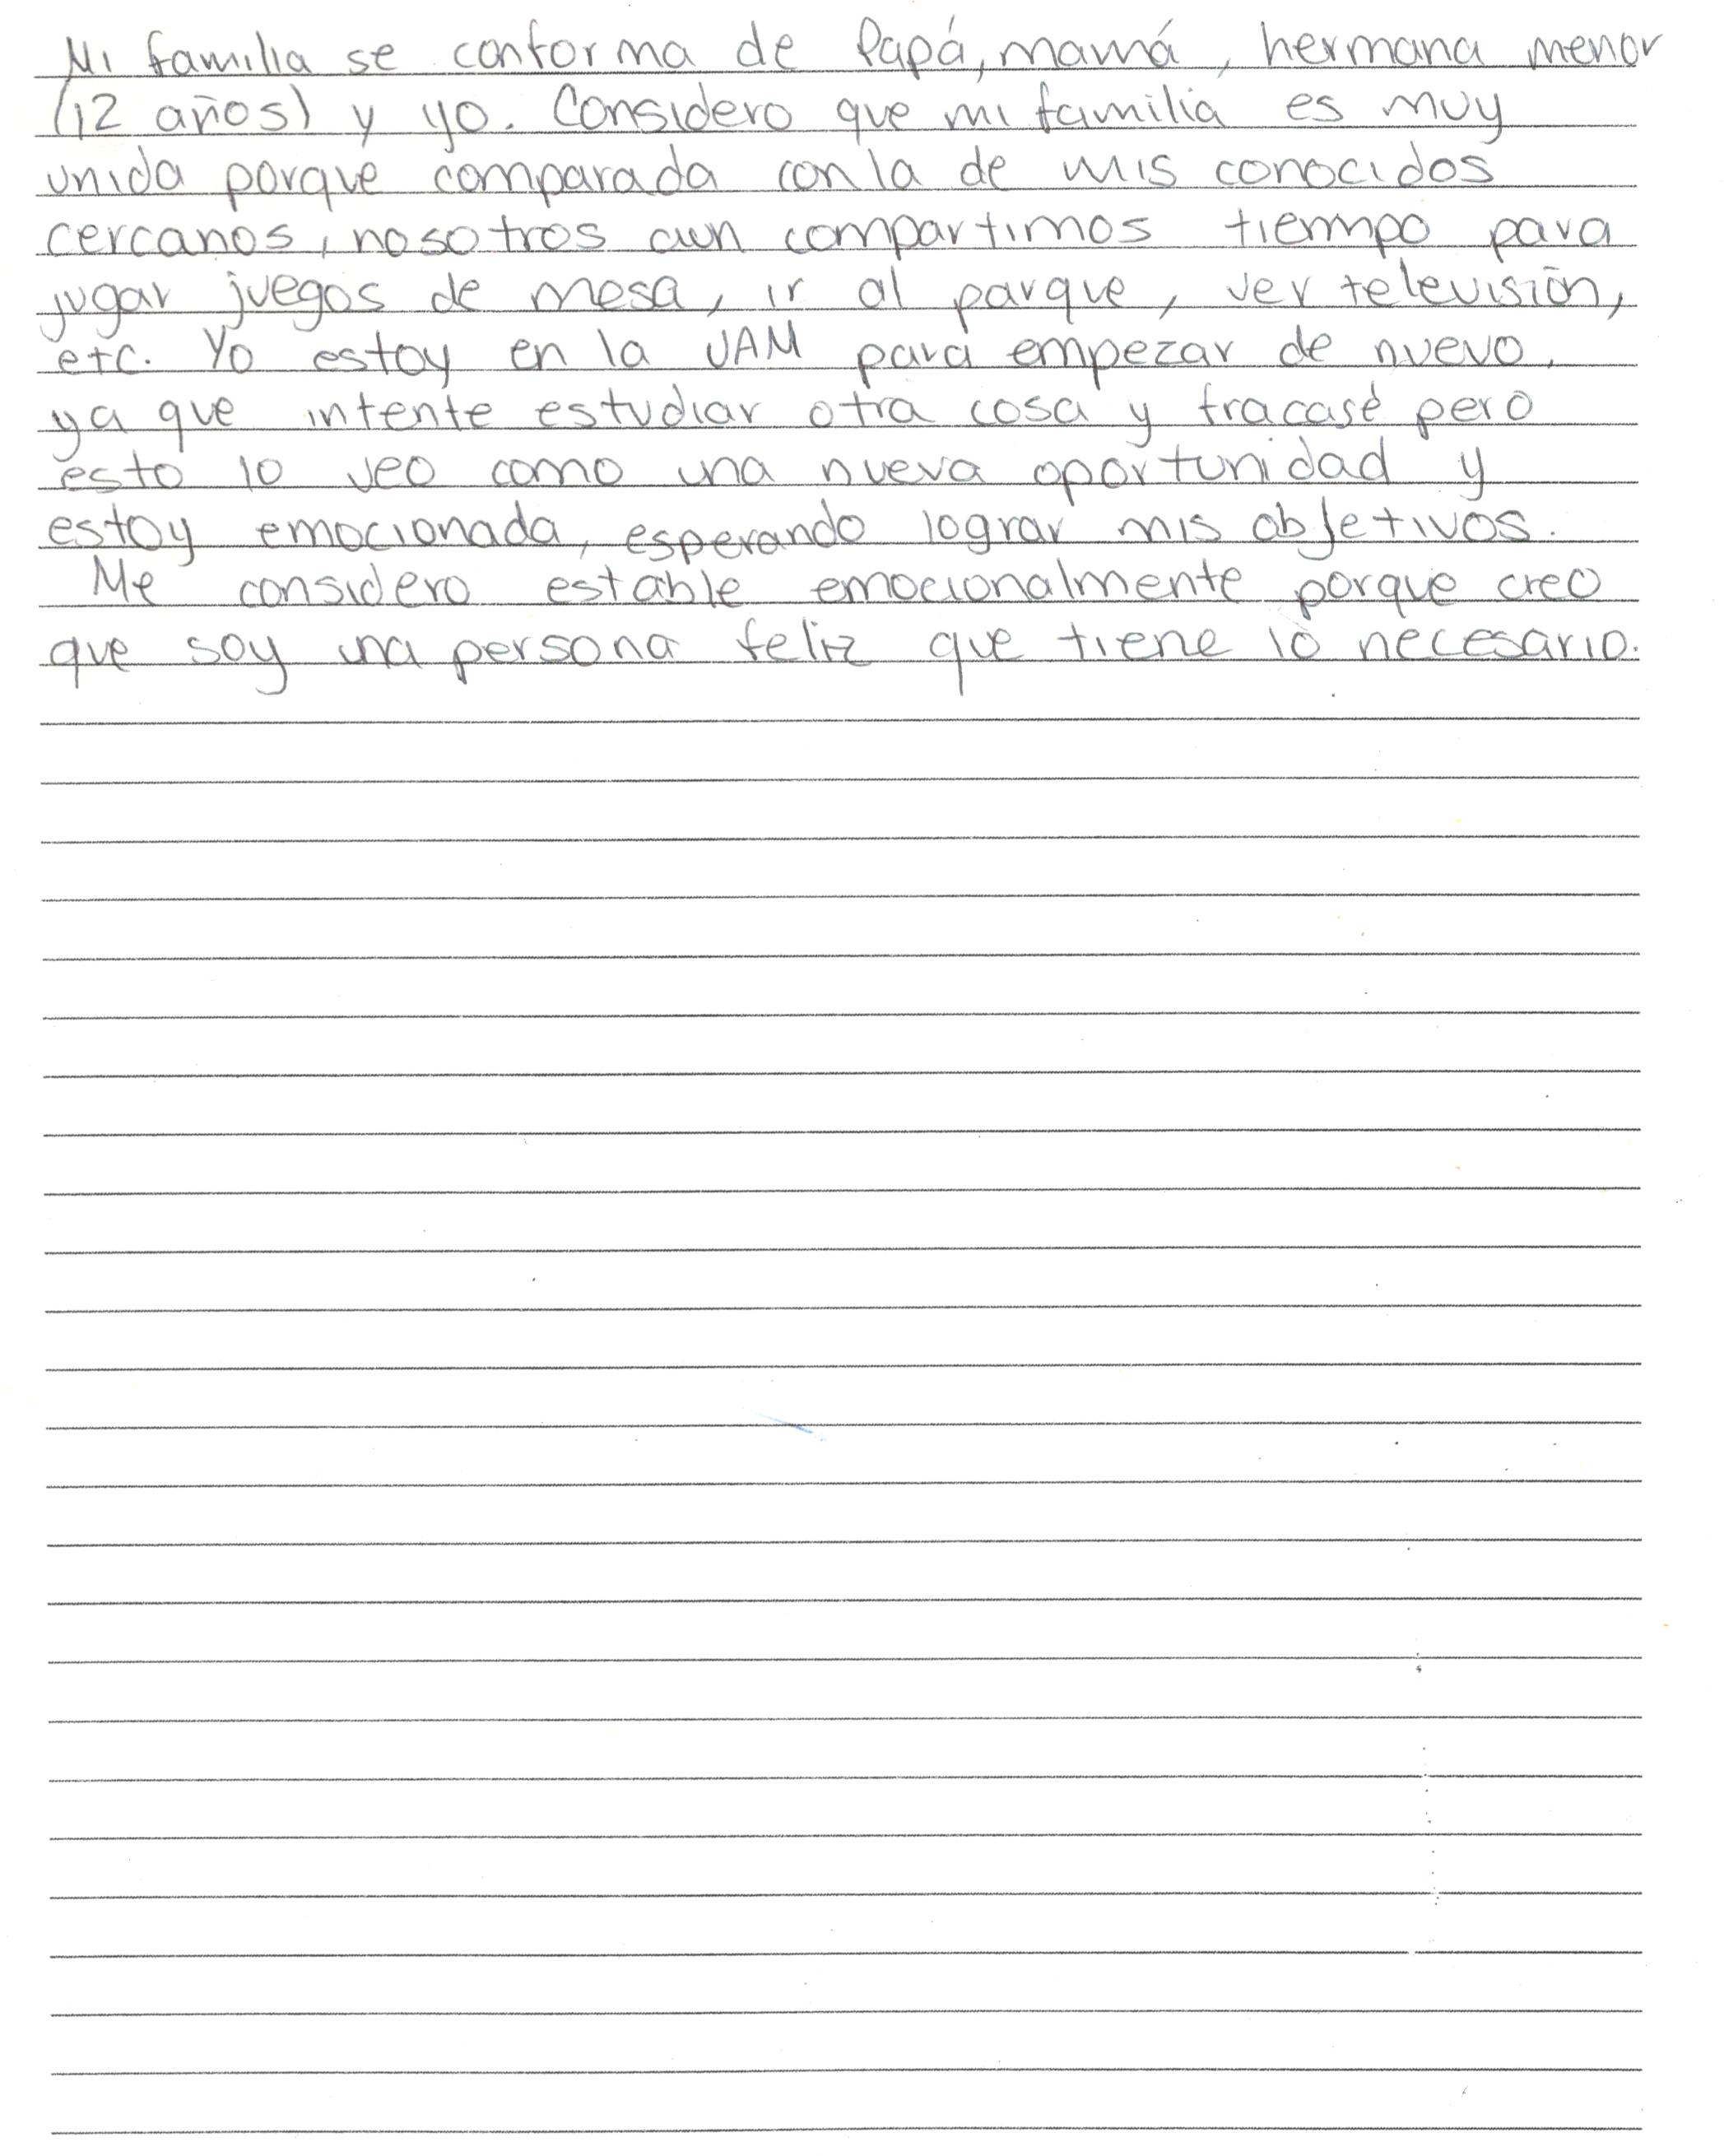 Mi familia se conforma de Papá, mamá, hermana menor
(12 años) y yo. Considero que mi familia es muy
unida porque comparada con la de mis conocidos
cercanos, nosotros aun compartimos tiempo para
jugar juegos de mesa, ir al parque, ver televisión,
etc. Yo estoy en la UAM para empezar de nuevo,
ya que intente estudiar otra cosa y fracasé pero
esto lo veo como una nueva oportunidad y
estoy emocionada, esperando lograr mis objetivos.
Me considero estable emocionalmente porque creo
que soy una persona feliz que tiene lo necesario.